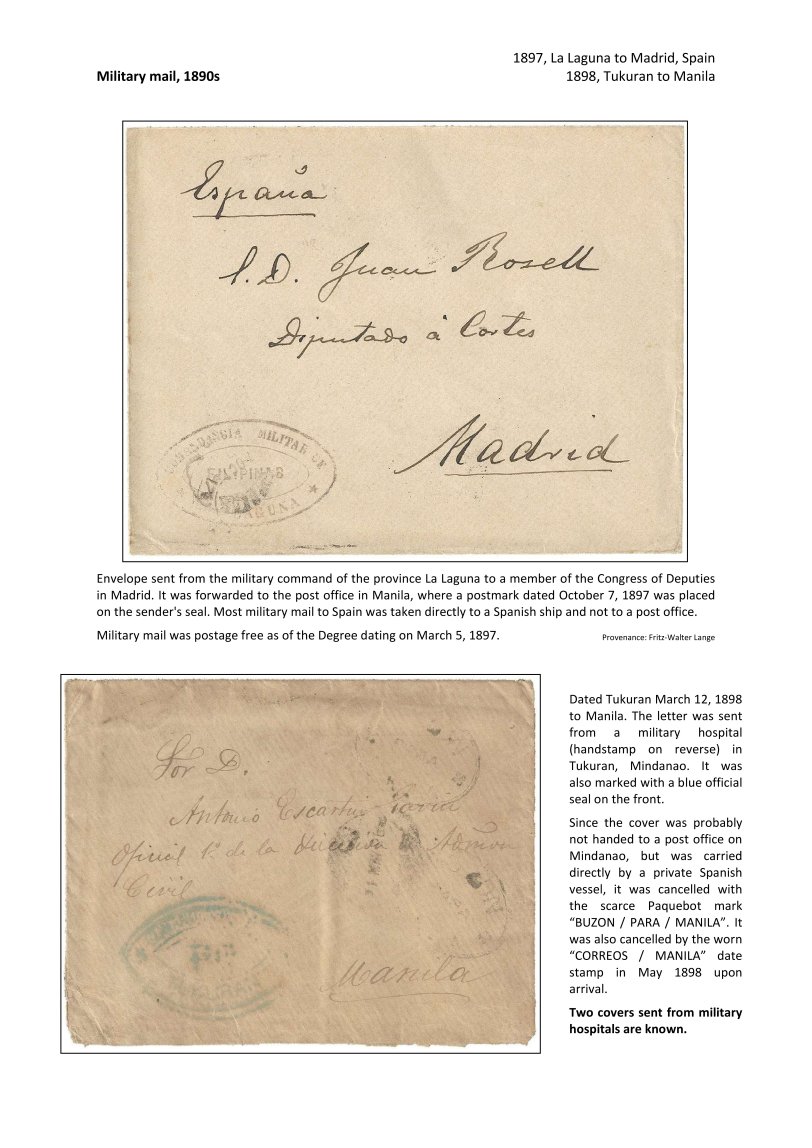 1897, La Laguna to Madrid, Spain
Military mail, 1890s
1898, Tukuran to Manila
España
S. D. Juan Rosell
Diputado à Cortes
Madrid
COMANDANCIA MILITAR DE
FILIPINAS
LAGUNA
Envelope sent from the military command of the province La Laguna to a member of the Congress of Deputies
in Madrid. It was forwarded to the post office in Manila, where a postmark dated October 7, 1897 was placed
on the sender's seal. Most military mail to Spain was taken directly to a Spanish ship and not to a post office.
Military mail was postage free as of the Degree dating on March 5, 1897.
Provenance: Fritz-Walter Lange
Sor D.
Antonio Escartin
Oficial 1º de la
Civil
Manila
Dated Tukuran March 12, 1898
to Manila. The letter was sent
from a military hospital
(handstamp on reverse) in
Tukuran, Mindanao. It was
also marked with a blue official
seal on the front.
Since the cover was probably
not handed to a post office on
Mindanao, but was carried
directly by a private Spanish
vessel, it was cancelled with
the scarce Paquebot mark
“BUZON / PARA / MANILA”. It
was also cancelled by the worn
“CORREOS / MANILA” date
stamp in May 1898 upon
arrival.
Two covers sent from military
hospitals are known.